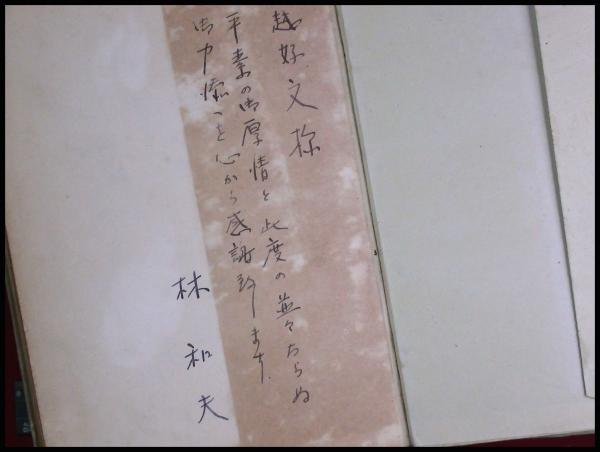 越好文様
平素の御厚情と此度の並々ならぬ
御力添へを心から感謝致します。
林和夫